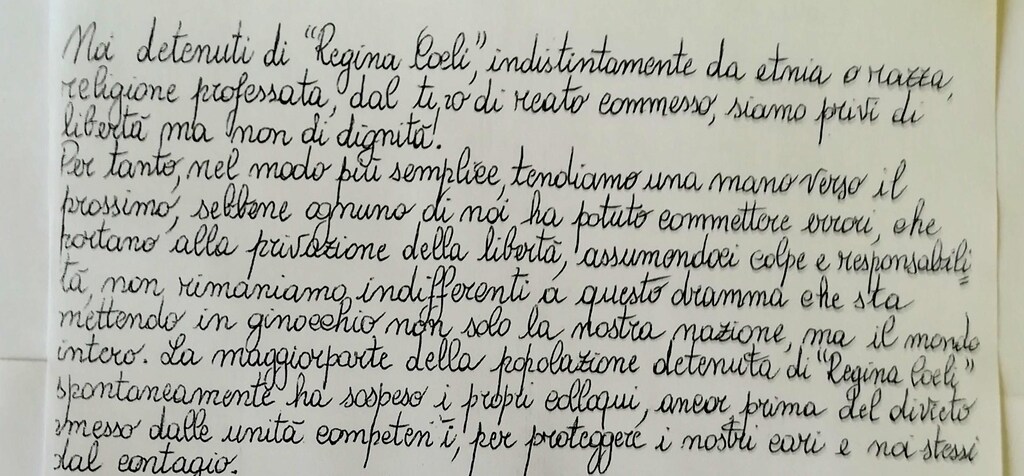 Noi detenuti di "Regina Coeli", indistintamente da etnia o razza,
religione professata, dal tipo di reato commesso, siamo privi di
libertà ma non di dignità!
Per tanto, nel modo più semplice, tendiamo una mano verso il
prossimo, sebbene ognuno di noi ha potuto commettere errori, che
portano alla privazione della libertà, assumendoci colpe e responsabili
tà, non rimaniamo indifferenti a questo dramma che sta
mettendo in ginocchio non solo la nostra nazione, ma il mondo
intero. La maggiorparte della popolazione detenuta di "Regina Coeli"
spontaneamente ha sospeso i propri colloqui, ancor prima del divieto
emesso dalle unità competenti, per proteggere i nostri cari e noi stessi
dal contagio.